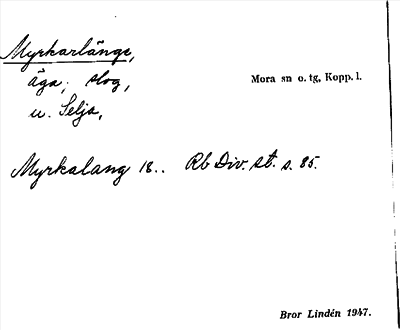 Myrkarlänge,
äga; slog,
Mora sn o. tg, Kopp. l.
u. Selja,
Myrkalang 18.. Rb Div. st. s. 85.
Bror Lindén 1947.